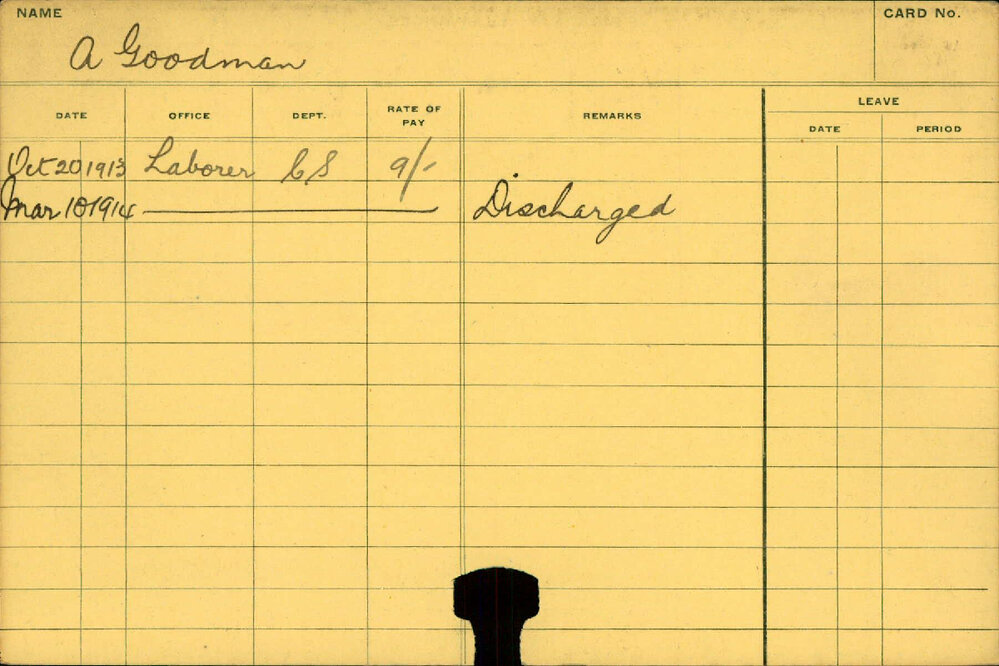 NAME CARD No.
A Goodman
DATE OFFICE DEPT. RATE OF PAY REMARKS LEAVE
DATE PERIOD
Oct 20 1913 Laborer CS 9/-
Mar 10 1914 Discharged